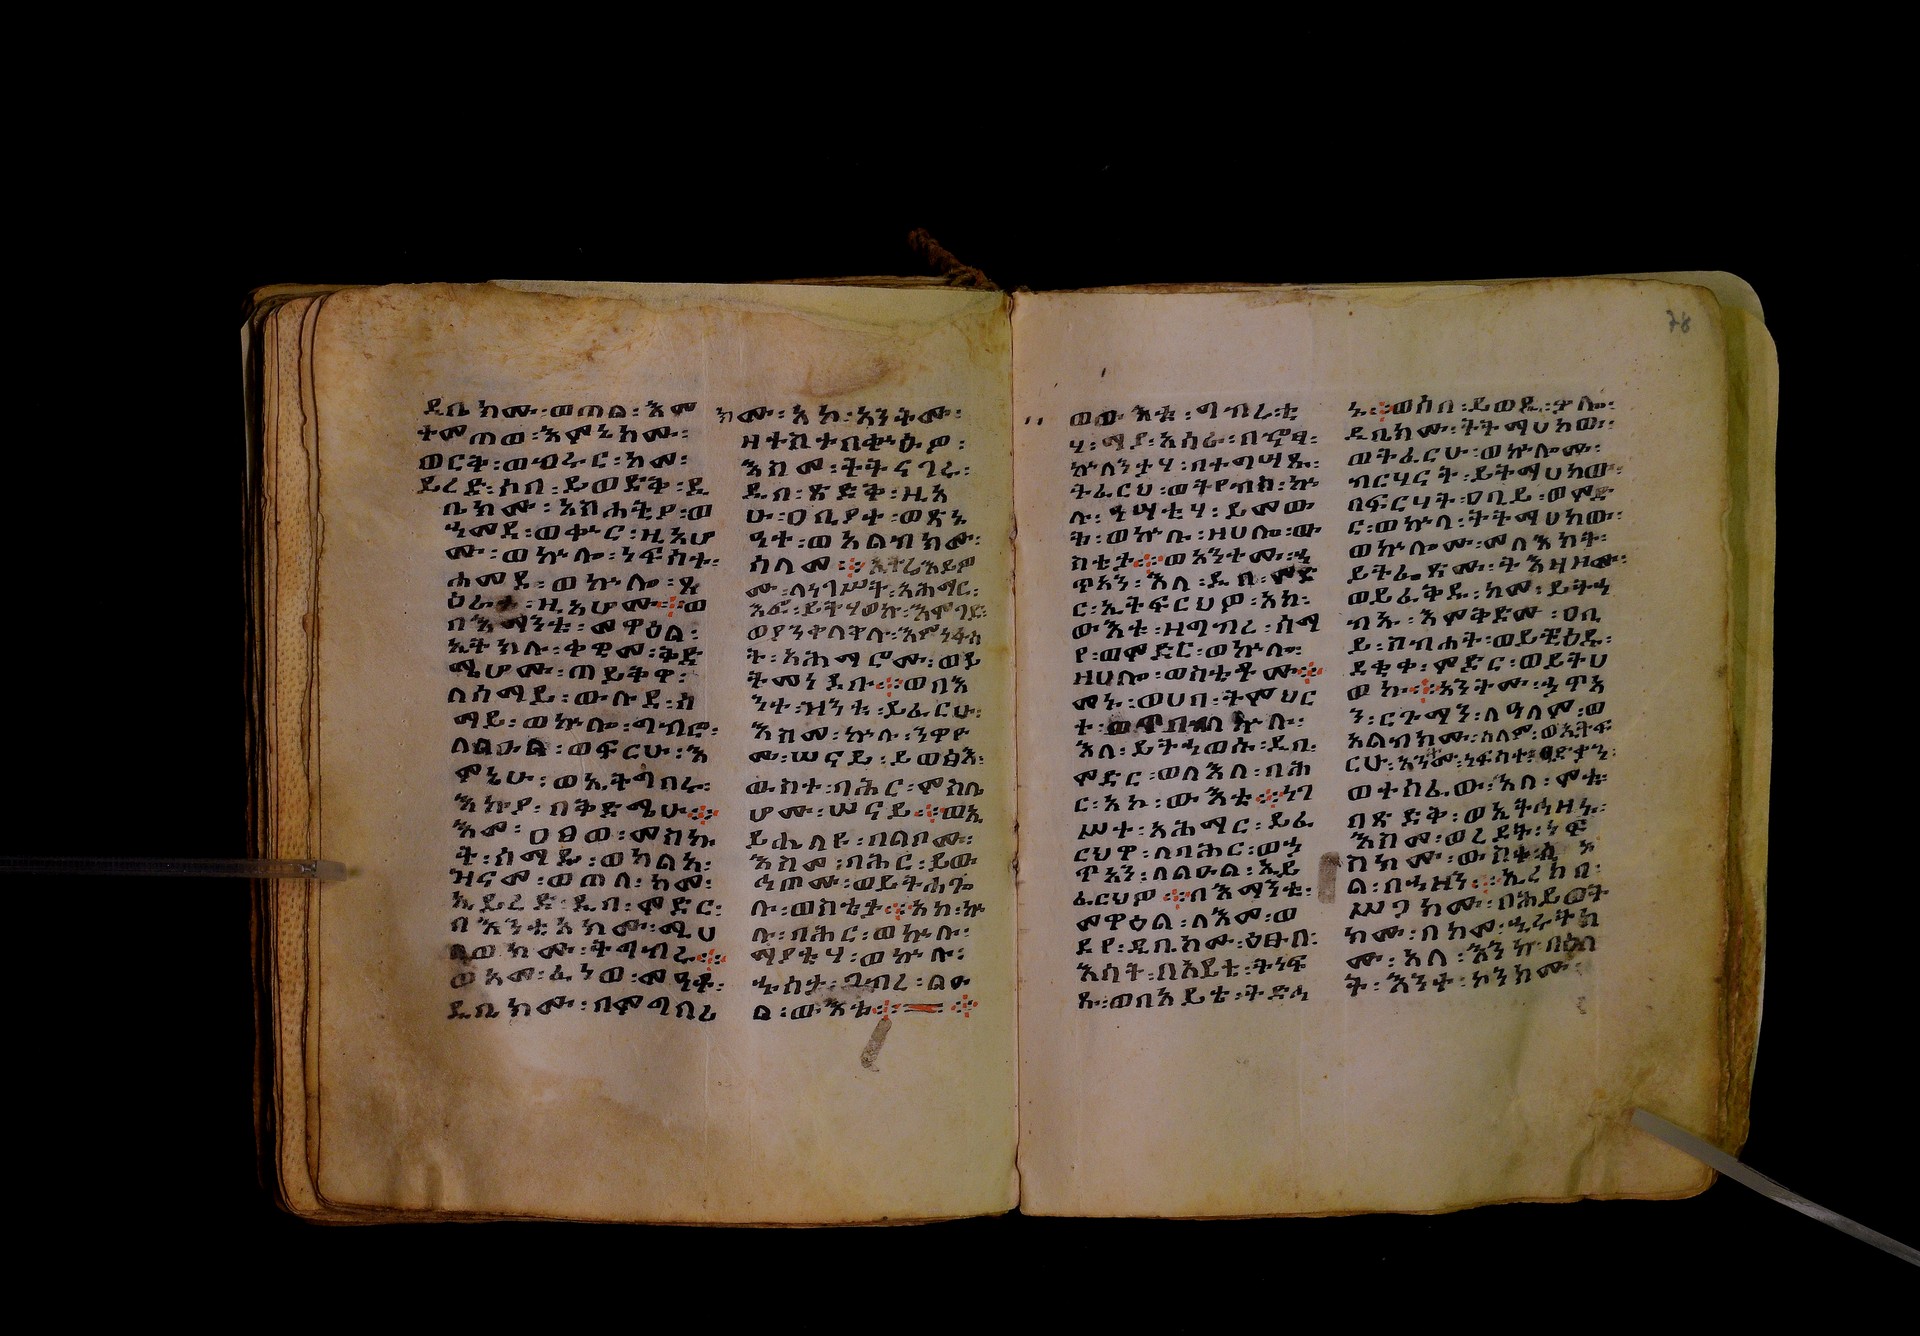 ዲቤክሙ፡ወጠል፡እም
ተመጠወ፡እምኔክሙ፡
ወርቀ፡ወብሩር፡ከመ፡
ይረድ፡ሶበ፡ይወድቅ፡ዲ
ቤክሙ፡አስሐትያ፡ወ
ሐመዳ፡ወቀሩር፡ዚአሆ
ሙ፡ወኵሎ፡ነፍሳተ፡
ሐመዳ፡ወኵሎ፡ፃ
ዕራተ፡ዚአሆሙ፨ወ
በእማንቱ፡መዋዕል፡
ኢትክሉ፡ቀዊመ፡ቅድ
ሜሆሙ፡ጠይቅዋ፡
ለሰማይ፡ውሉደ፡ሰ
ማይ፡ወኵሎ፡ግብሮ፡
ለልዑል፡ወፍርሁ፡እ
ምኔሁ፡ወኢትግበሩ፡
እኩየ፡በቅድሜሁ፨
እመ፡ዐፀወ፡መስኮ
ተ፡ሰማይ፡ወከልአ፡
ዝናመ፡ወጠለ፡ከመ፡
ኢይረድ፡ዲበ፡ምድር፡
በእንቲአክሙ፡ሚሀ
ለወክሙ፡ትግብሩ፨
ወእመ፡ፈነወ፡መዓቶ፡
ዲቤክሙ፡በምግባሪ
ክሙ፡አኮ፡አንትሙ፡
ዘተስተበቍዕዎ፡
እስመ፡ትትናገሩ፡
ዲበ፡ጽድቅ፡ዚአ
ሁ፡ዐቢያተ፡ወጽኑ
ዓተ፡ወአልብክሙ፡
ሰላም፨ኢትሬእይዎ
ሙ፡ለነገሥተ፡አሕማር፡
እፎ፡ይትሃወኩ፡እሞገደ፡
ወያንቀለቅሉ፡እምነፋሳ
ት፡አሕማሮሙ፡ወይ
ትመነደቡ፨ወበእ
ንተ፡ዝንቱ፡ይፈርሁ፡
እስመ፡ኵሉ፡ንዋዮ
ሙ፡ሠናይ፡ይወፅእ፡
ውስተ፡ባሕር፡ምስሌ
ሆሙ፡ሠናይ፨ወኢ
ይሔልዩ፡በልቦሙ፡
እስመ፡ባሕር፡ይው
ኅጦሙ፡ወይትሐጐ
ሉ፡ውስቴታ፨አኮ፡ኵ
ሉ፡ባሕር፡ወኵሉ፡
ማያቲሃ፡ወኵሉ፡
ሁስታ፡ግብረ፡ልዑ
ል፡ውእቱ፨
ወውእቱ፡ግብራቲ
ሃ፡ማያ፡አሰራ፡በኆፃ፡
ኵለንታሃ፡በተግሣጹ፡
ትፈርህ፡ወትየብስ፡ኵ
ሉ፡ዓሣቲሃ፡ይመው
ት፡ወኵሉ፡ዘሀሎ፡ው
ስቴታ፨ወአንተሙ፡ኃ
ጥአን፡እለ፡ዲበ፡ምድ
ር፡ኢትፍርህዎ፡አኮ፡
ውእቱ፡ዘግብረ፡ሰማ
የ፡ወምድር፡ወኵሎ፡
ዘሀሎ፡ወስቴቶሙ፨
መኑ፡ወሀበ፡ትምህር
ተ፡ወጥበበ፡ኵሉ፡
እለ፡ይትኃወሱ፡ዲበ፡
ምድር፡ወለእለ፡በሕ
ር፡አኮ፡ውእቱ፨ነገ
ሥተ፡አሕማር፡ይፈ
ርህዋ፡ለባሕር፡ወኃ
ጥአን፡ለልዑል፡ኢይ
ፈርህዎ፨በእማንቱ፡
መዋዕል፡ለእመ፡ወ
ደየ፡ዲቤክሙ፡ዕፁበ፡
እሳት፡በአይቴ፡ትነፍ
ጹ፡ወበአይቴ፡ትድኅ
ኑ፨ወሶበ፡ይወዲ፡ቃሎ፡
ዲቤክሙ፡ትትማሀከው፡
ወትፈርሁ፡ወኵሎሙ፡
ብርሃናት፡ይትማሀከው፡
በፍርሃት፡ዐቢይ፡ወምድ
ር፡ወኵላ፡ትትማሀከው፡
ወኵሎሙ፡መላእክት፡
ይትፌጽሙ፡ትእዛዞሙ፡
ወይፈቅዱ፡ከመ፡ይትኃ
ብኡ፡እምቅድመ፡ዐቢ
ይ፡ስብሐት፡ወይርዕዱ፡
ደቂቀ፡ምድር፡ወይትሀ
ወኩ፨አንትሙ፡ኃጥአ
ን፡ርጉማን፡ለዓለም፡ወ
አልብክሙ፡ሰላም፡ወኢትፍ
ርሁ፡አንትሙ፡ነፍሳተ፡ጻድቃን፡
ወተሰፈው፡እለ፡ሞቱ፡
በጽድቅ፡ወኢትኅዝኑ፡
እስመ፡ወረደት፡ነፍ
ስክሙ፡ውስተ፡ሲኦ
ል፡በኃዘን፨ኢረከበ፡
ሥጋክሙ፡በሕይወት
ክሙ፡በከመ፡ኂሩትክ
ሙ፡አላ፡እንከ፡በዕለ
ት፡እንተ፡ኮንክሙ፡
78